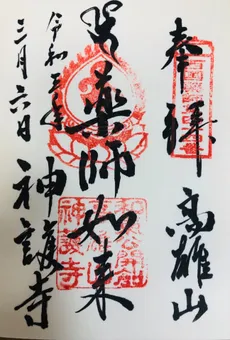 奉拝 高雄山
薬師如来
令和三年
三月六日 神護寺
神護寺